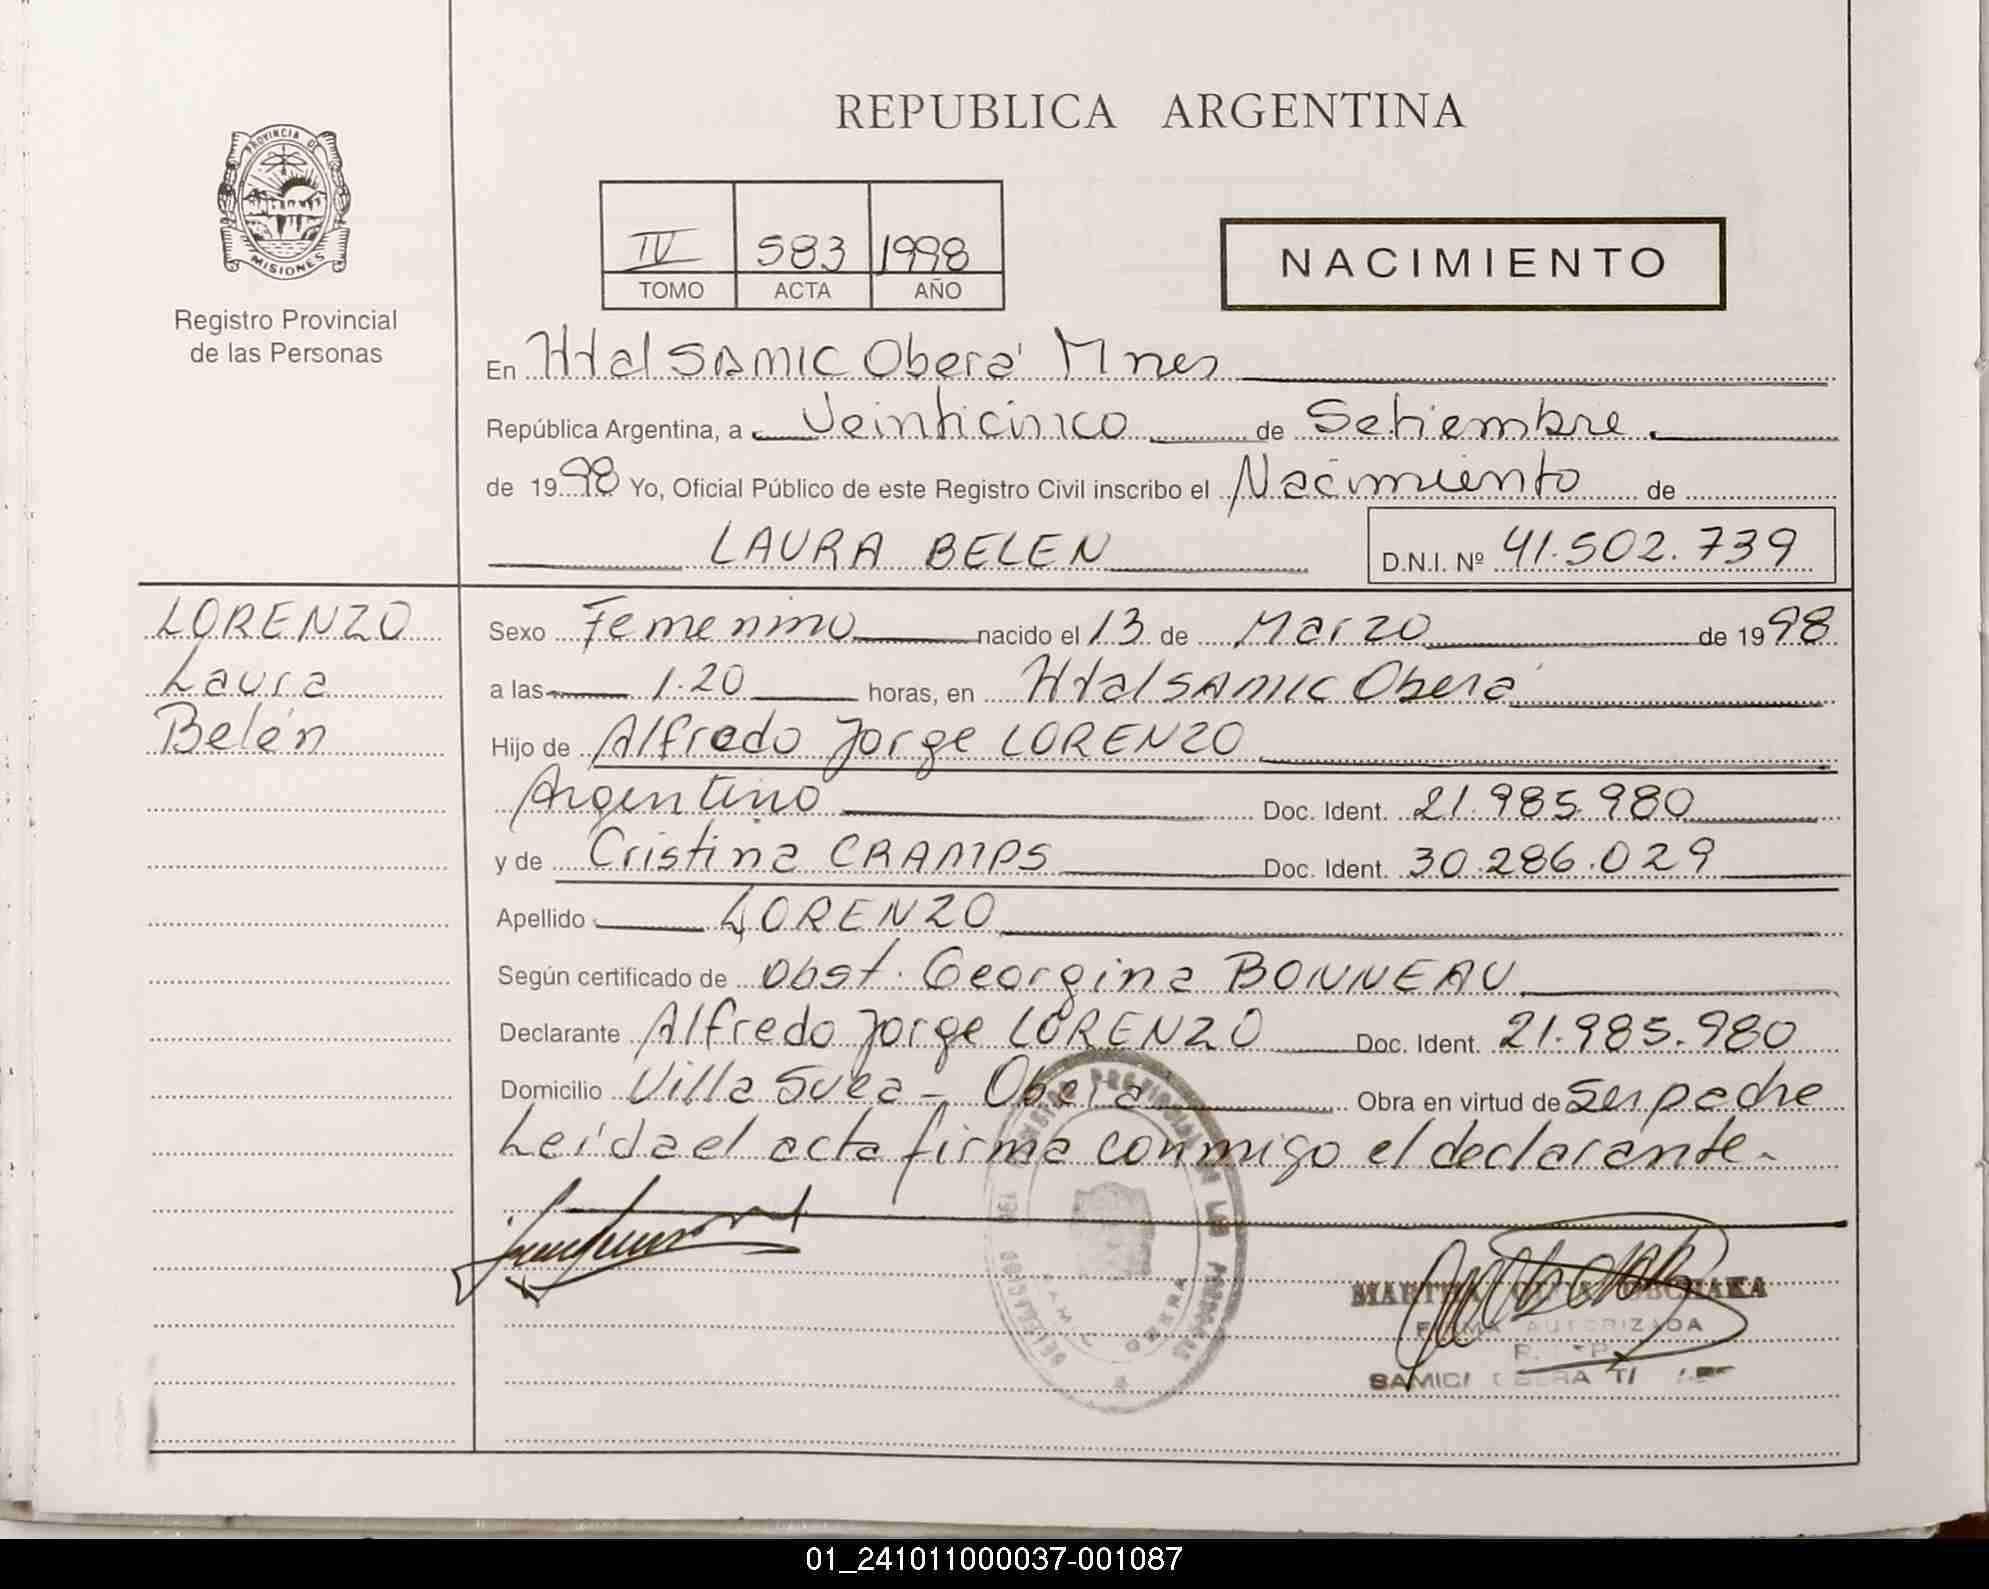 REPUBLICA ARGENTINA
PROVINCIA DE
MISIONES
Registro Provincial
de las Personas
IV 583 1998
TOMO ACTA AÑO
NACIMIENTO
En Htal SAMIC Oberá Mnes
República Argentina, a Veinticinco de Setiembre.
de 1998 Yo, Oficial Público de este Registro Civil inscribo el Nacimiento de
LAURA BELEN D.N.I. Nº 41.502.739
LORENZO
Laura
Belén
Sexo Femenino nacido el 13 de Marzo de 1998
a las 1.20 horas, en Htal SAMIC Oberá
Hijo de Alfredo Jorge LORENZO
Argentino Doc. Ident. 21.985.980
y de Cristina CRAMPS Doc. Ident. 30.286.029
Apellido LORENZO
Según certificado de Obst. Georgina BONNEAU
Declarante Alfredo Jorge LORENZO Doc. Ident. 21.985.980
Domicilio Villa Svea - Oberá Obra en virtud de ser padre
Leída el acta firma conmigo el declarante.-
PROVINCIAL DE LAS PERSONAS
OBERA
MARTHA
FIRMA AUTORIZADA
OBERA
01_241011000037-001087